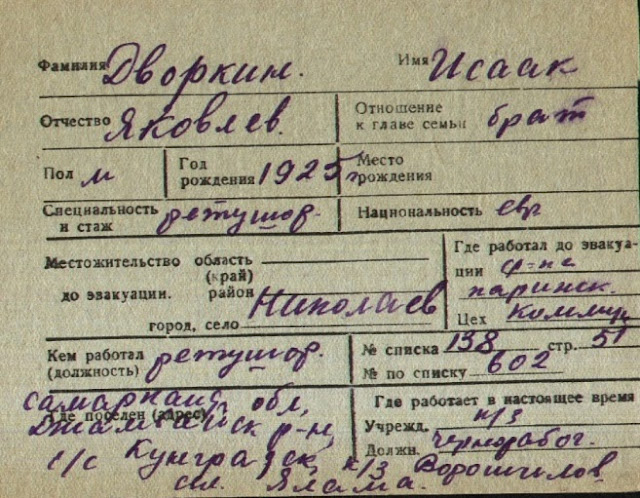 Фамилия Дворкин. Имя Исаак
Отчество Яковлев. Отношение к главе семьи брат
Пол м Год рождения 1925 г. Место рождения
Специальность и стаж ретушор. Национальность евр
Местожительство область
(край)
до эвакуации. район
город, село Николаев
Где работал до эвакуа-
ции ф-ка
парижск.
Цех Коммун.
Кем работал (должность) ретушор.
№ списка 138 стр. 51
№ по списку 602
Где поселен (адрес)
Самарканд. обл,
Джамбайск р-н,
с/с Кунградск, к/з Ворошилов
Где работает в настоящее время
Учрежд. к/з
Должн. чернорабоч.